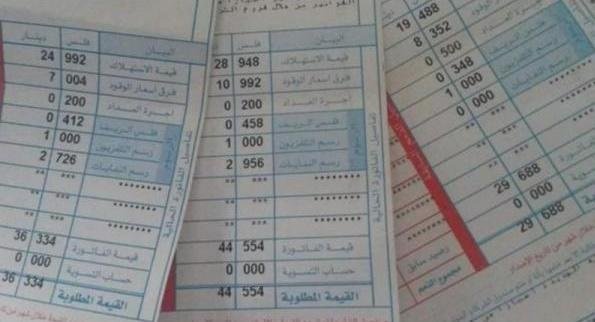 دينار فلس البيان
24 992 قيمة الاستهلاك
7 004 فرق أسعار الوقود
0 200 اجرة العداد
0 412 فلس الريف
1 000 رسم التلفزيون
2 726 رسم النفايات
** *** ********
** *** ********
** *** ********
36 334 قيمة الفاتورة
0 000 حساب التسوية
36 334 القيمة المطلوبة
الرسوم
تفاصيل الفاتورة الحالية
فلس البيان
28 948 قيمة الاستهلاك
10 992 فرق أسعار الوقود
0 200 اجرة العداد
0 458 فلس الريف
1 000 رسم التلفزيون
2 956 رسم النفايات
** *** ********
** *** ********
** *** ********
44 554 قيمة الفاتورة
0 000 حساب التسوية
44 554 القيمة المطلوبة
الرسوم
تفاصيل الفاتورة الحالية
19 488
8 352 الوقود
0 500 اجرة العداد
0 348 فلس الريف
1 000 رسم التلفزيون
0 000 رسم النفايات
** ***
** ***
** ***
29 688
0 000
29 688
رصيد سابق
مجموع الذمم